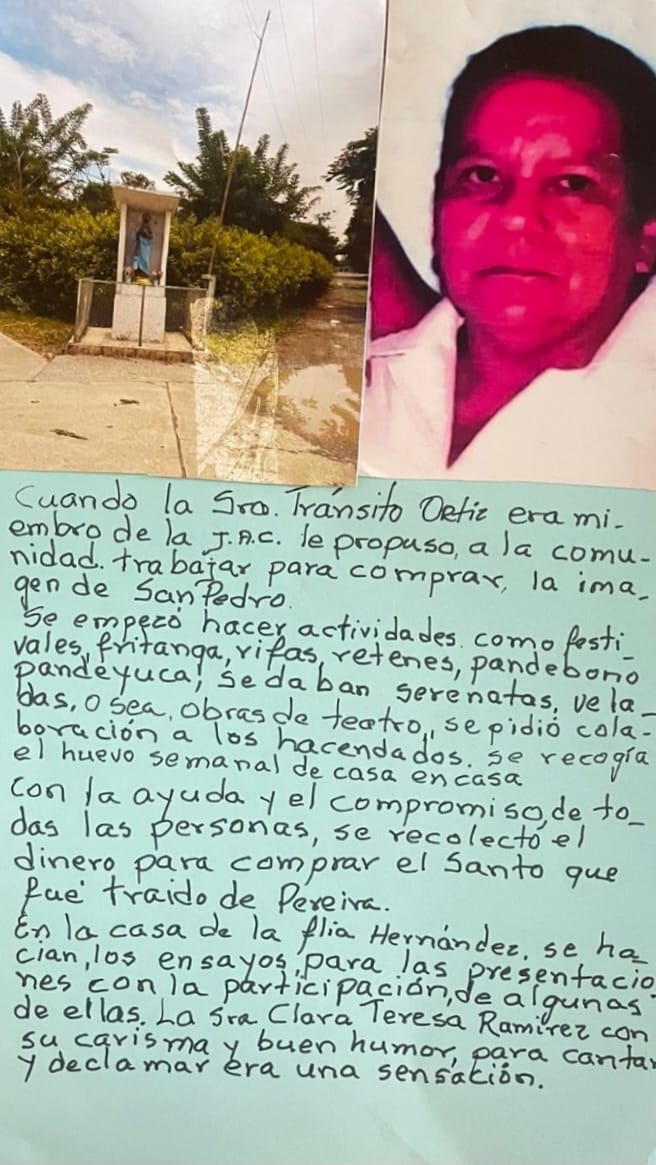 Cuando la Sra. Tránsito Ortiz era mi-
embro de la J.A.C. le propuso, a la comu-
nidad. trabajar para comprar, la ima-
gen de San Pedro.
Se empezó hacer actividades. como festi-
vales, fritanga, rifas, retenes, pandebono
pandeyuca, se daban serenatas, vela-
das, o sea, obras de teatro, se pidió cola-
boración a los hacendados. se recogía
el huevo semanal de casa en casa
Con la ayuda y el compromiso, de to-
das las personas, se recolectó el
dinero para comprar el Santo que
fué traido de Pereira.
En la casa de la flia Hernández. se ha-
cian, los ensayos, para las presentacio-
nes con la participación, de algunas
de ellas. La Sra Clara Teresa Ramirez con
su carisma y buen humor, para cantar
y declamar era una sensación.